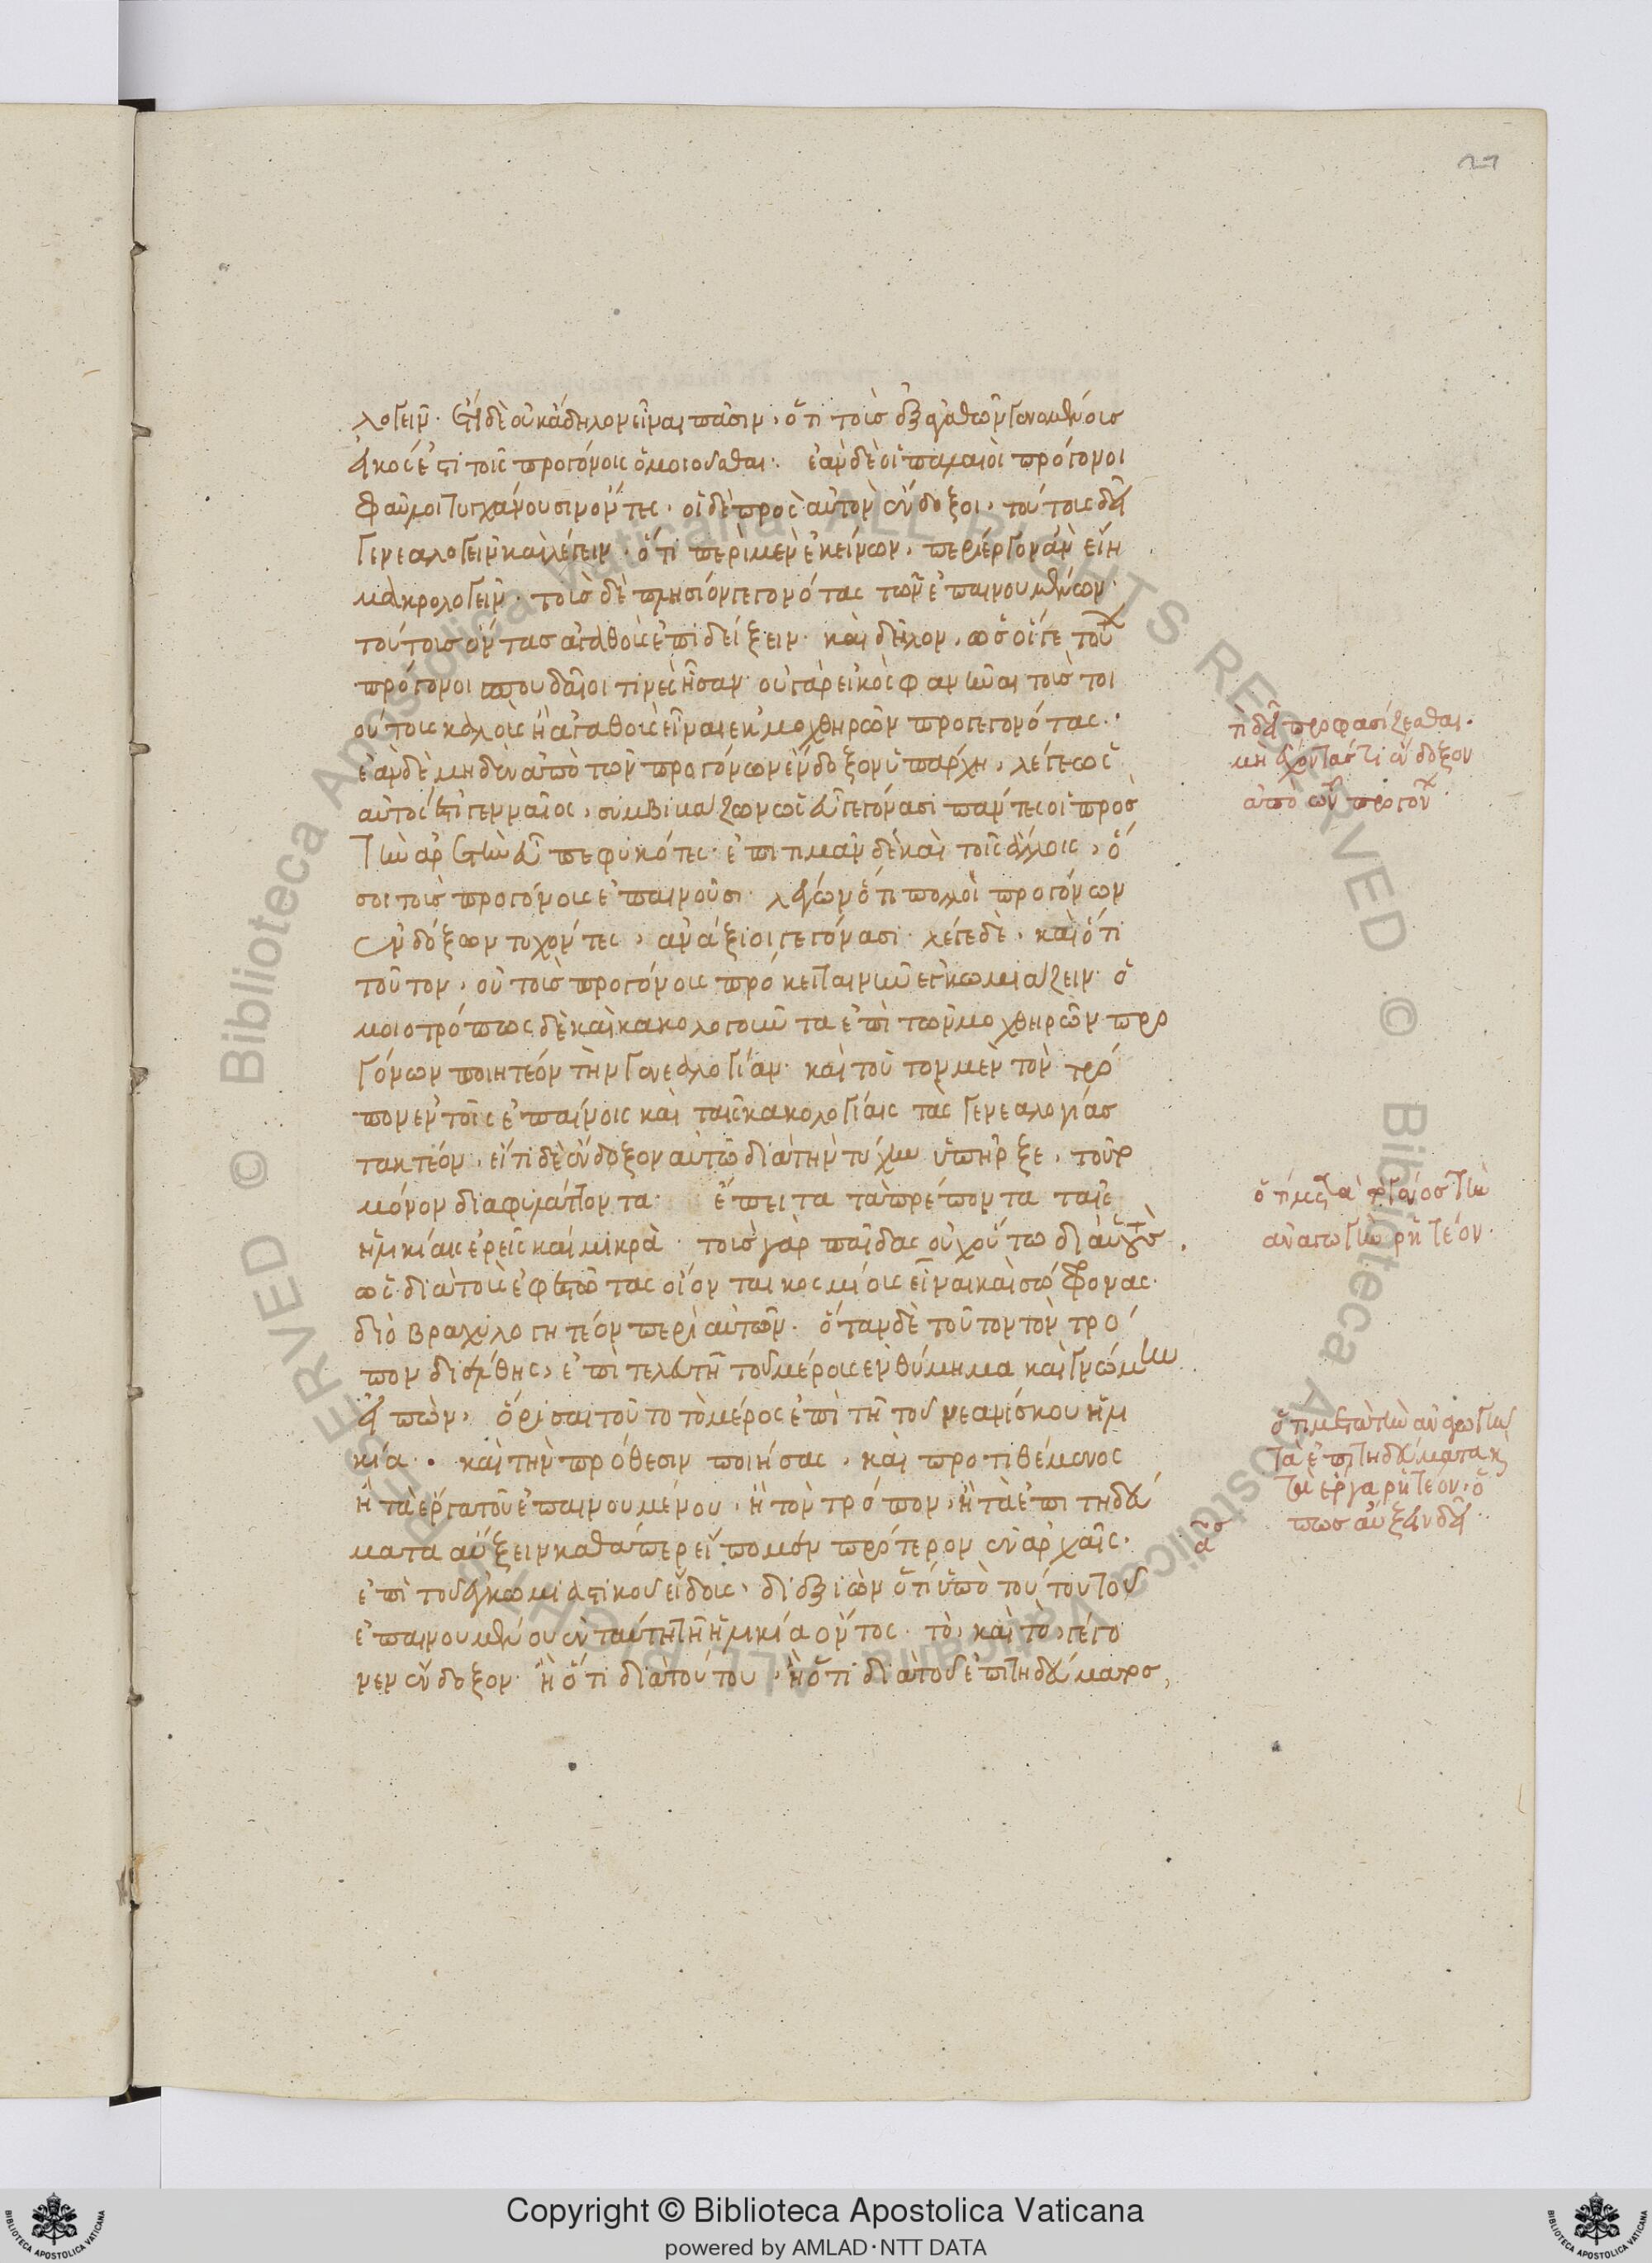 λογεῖν. εἰ δὲ οὐκ ἄδηλον εἶναι πᾶσιν, ὅτι τοὺς ἐξ ἀγαθῶν γενομένους
εἰκός ἐστι τοῖς προγόνοις ὁμοιοῦσθαι. ἐὰν δὲ οἱ παλαιοὶ πρόγονοι
φαῦλοι τυγχάνουσιν ὄντες, οἱ δὲ πρὸς αὐτὸν ἔνδοξοι, τούτους δεῖ
γενεαλογεῖν καὶ λέγειν, ὅτι περὶ μὲν ἐκείνων, περίεργον ἂν εἴη
μακρολογεῖν. τοὺς δὲ πλησίον γεγονότας τῶν ἐπαινουμένων
τούτους ὄντας ἀγαθοὺς ἐπιδείξειν. καὶ δῆλον, ὡς οἵ γε τούτων
πρόγονοι σπουδαῖοι τινὲς ἦσαν. οὐ γὰρ εἰκὸς φανῆναι τοὺς τοι
ούτους καλοὺς ἢ ἀγαθοὺς εἶναι ἐκ μοχθηρῶν προγεγονότας.
ἐὰν δὲ μηδὲν ἀπὸ τῶν προγόνων ἔνδοξον ὑπάρχῃ, λέγε ὡς
αὐτός ἐστι γενναῖος, συμβιβάζων ὡς εὖ γεγόνασι πάντες οἱ πρὸς
τὴν ἀρετὴν εὖ πεφυκότες. ἐπιτιμᾶν δὲ καὶ τοῖς ἄλλοις, ὅ
σοι τοὺς προγόνους ἐπαινοῦσι. λέγων ὅτι πολλοὶ προγόνων
ἐνδόξων τυχόντες, ἀνάξιοι γεγόνασι. λέγε δὲ, καὶ ὅτι
τοῦτον, οὐ τοὺς προγόνους πρόκειται νῦν ἐγκωμιάζειν. ὁ
μοιοτρόπως δὲ καὶ κακολογοῦντα ἐπὶ τῶν μοχθηρῶν προ
γόνων ποιητέον τὴν γενεαλογίαν. καὶ τοῦτον μὲν τὸν τρό
πον ἐν τοῖς ἐπαίνοις καὶ ταῖς κακολογίαις τὰς γενεαλογίας
τακτέον. εἴ τι δὲ ἔνδοξον αὐτῷ διὰ τὴν τύχην ὑπῆρξε, τοῦτο
μόνον διαφυλάττοντα. ἔπειτα τὰ πρέποντα ταῖς
ἡλικίαις ἐρεῖς καὶ μικρά. τοὺς γὰρ παῖδας οὐχ οὕτω δι' αὑτοὺς,
ὡς διὰ τοὺς ἐφεστῶτας οἴονται κοσμίους εἶναι καὶ σώφρονας.
διὸ βραχυλογητέον περὶ αὐτῶν. ὅταν δὲ τοῦτον τὸν τρό
πον διέλθῃς, ἐπὶ τελευτῇ τοῦ μέρους ἐνθύμημα καὶ γνώμην
εἰπὼν, ὁρίσαι τοῦτο τὸ μέρος ἐπὶ τῇ τοῦ νεανίσκου ἡλι
κίᾳ. καὶ τὴν πρόθεσιν ποιήσας, καὶ προτιθέμενος
ἢ τὰ ἔργα τοῦ ἐπαινουμένου, ἢ τὸν τρόπον, ἢ τὰ ἐπιτηδεύ
ματα αὔξειν καθάπερ εἴπομεν πρότερον ἐν ἀρχαῖς.
ἐπὶ τοῦ ἐγκωμιαστικοῦ εἴδους, διεξιὼν ὅτι ὑπὸ τούτου τοῦ
ἐπαινουμένου ἐν ταύτῃ τῇ ἡλικίᾳ ὄντος, τὸ, καὶ τὸ, γέγο
νεν ἔνδοξον. ἢ ὅτι διὰ τούτου, ἢ ὅτι διὰ τοῦ ἐπιτηδεύματος,
τί δεῖ προφασίζεσθαι.
μὴ ἔχοντάς τι ἔνδοξον
ἀπὸ τῶν προγόνων
ἀναγωγὴν ῥητέον.
τὰ ἐπιτηδεύματα καὶ
τὰ ἔργα ῥητέον. ὅ
πως αὔξειν δεῖ
Copyright © Biblioteca Apostolica Vaticana
powered by AMLAD·NTT DATA